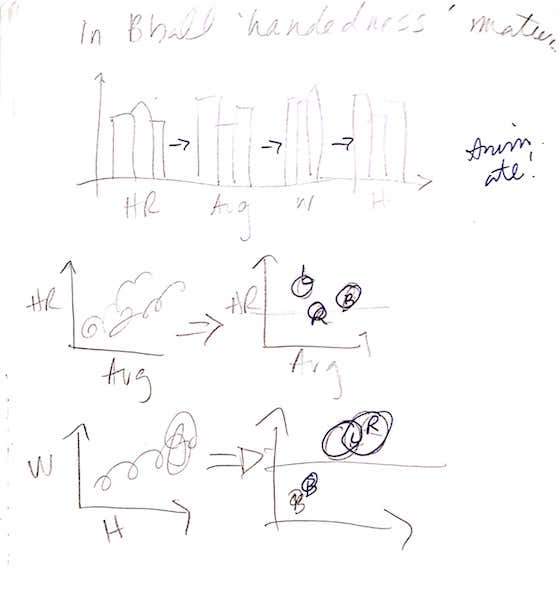 In Bball 'handedness' matters
HR Avg W H
Anim-
ate!
HR
Avg
HR
L
R
B
Avg
W
H
L R
B
B